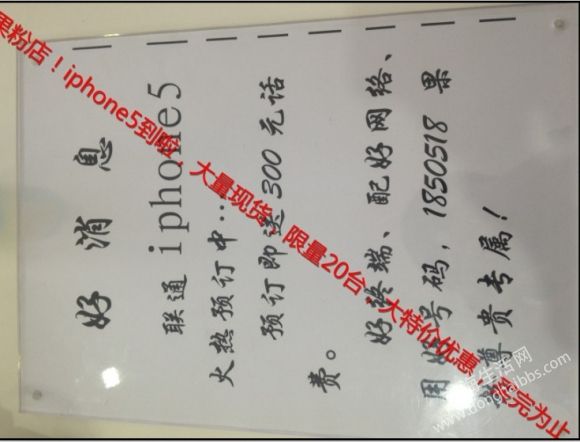 好消息
联通 iphone5
火热预订中…
预订即送300元话
费。
好终端、配好网络、
用好号码，1850518 果
尊贵专属！
果粉店！iphone5到啦，大量现货，限量20台！大特价优惠，售完为止
生活网
www.donghaibbs.com